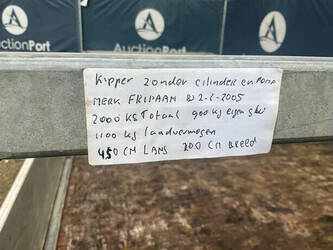 AuctionPort
AuctionPort
AuctionPort
Kipper zonder cilinder en Pomp
MERK FRIPAAN BJ 2-2-2005
2000 KG Totaal 900 kg eigen gew
1100 kg laadvermogen
450 CM LANG 200 CM BREED